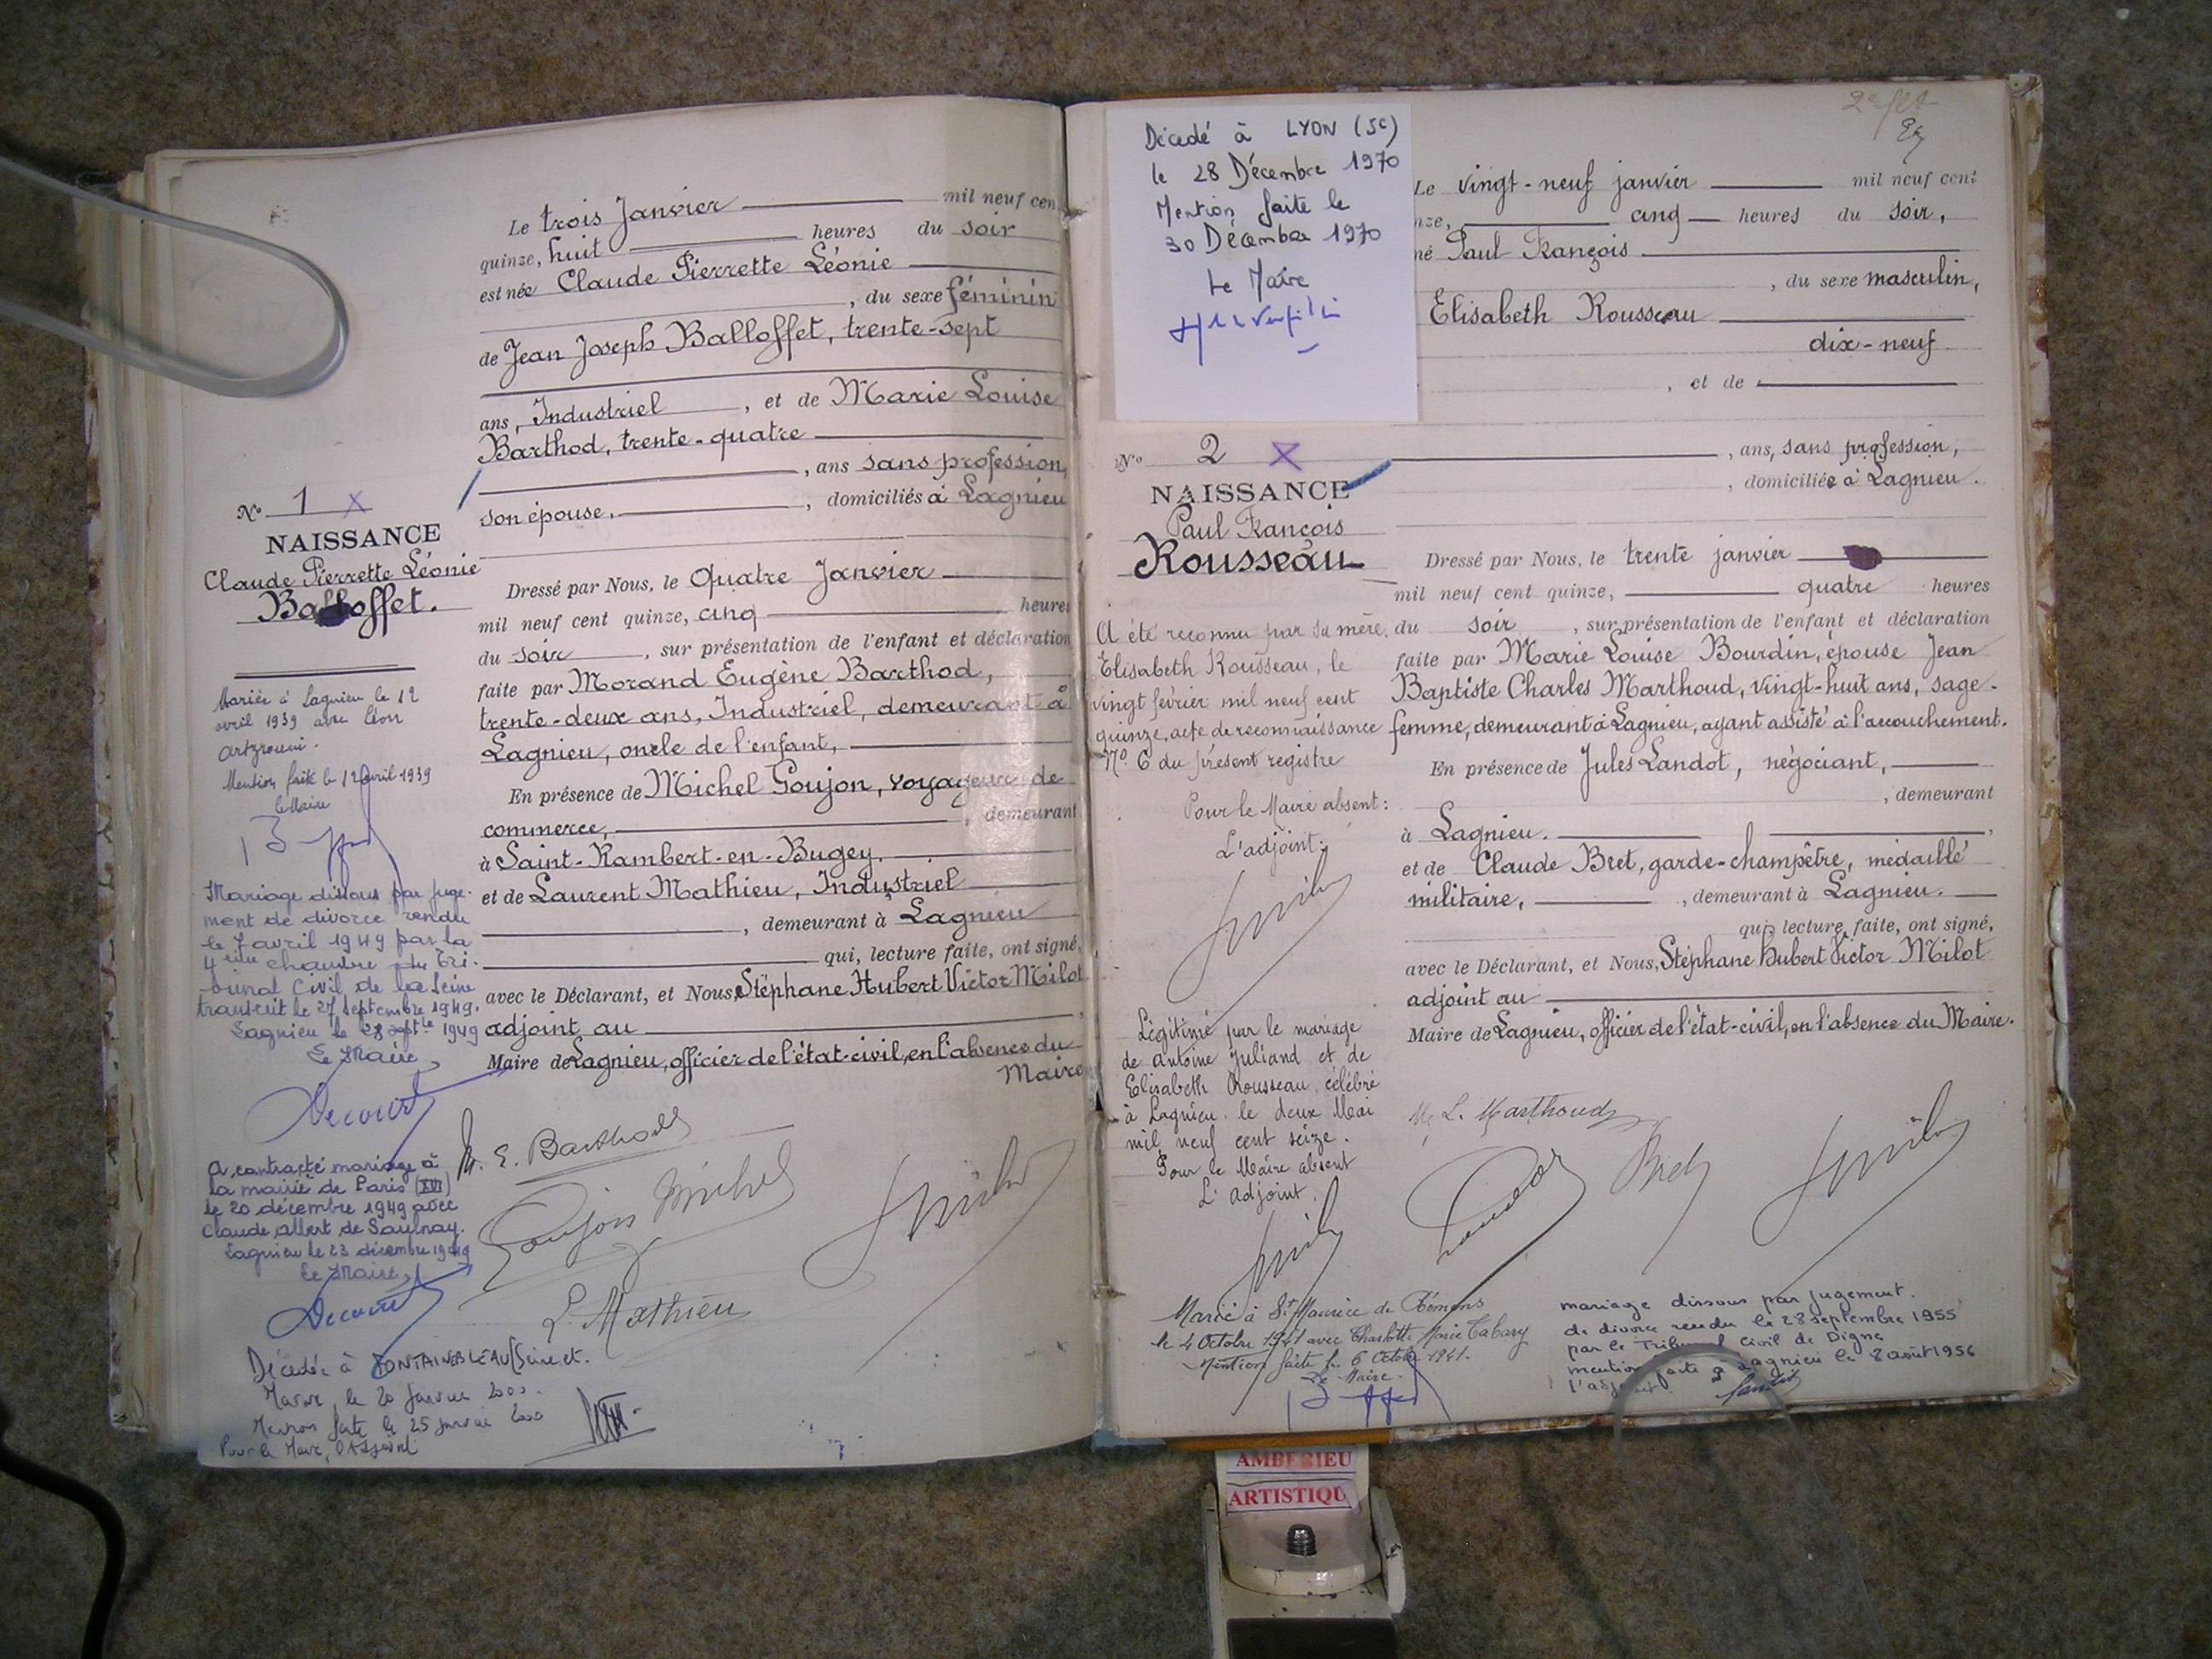 Le trois Janvier mil neuf cen
quinze, huit heures du soir
est née Claude Pierrette Léonie
, du sexe féminin
de Jean Joseph Balloffet, trente-sept
ans, Industriel, et de Marie Louise
Barthod, trente-quatre
, ans sans profession,
son épouse, , domiciliés à Lagnieu
N° 1 X
NAISSANCE
Claude Pierrette Léonie
Balloffet.
Dressé par Nous, le Quatre Janvier
mil neuf cent quinze, cinq heures
du soir, sur présentation de l'enfant et déclaration
faite par Morand Eugène Barthod,
trente-deux ans, Industriel, demeurant à
Lagnieu, oncle de l'enfant,
En présence de Michel Goujon, voyageur de
commerce, , demeurant
à Saint-Rambert-en-Bugey,
et de Laurent Mathieu, Industriel
, demeurant à Lagnieu
qui, lecture faite, ont signé,
avec le Déclarant, et Nous, Stéphane Hubert Victor Milot
adjoint au
Maire de Lagnieu, officier de l'état-civil, en l'absence du
Maire
Mariée à Lagnieu le 12
avril 1939 avec Léon
Artzrouni.
Mention faite le 12 avril 1939
le Maire
Mariage dissous par juge-
ment de divorce rendu
le 7 avril 1949 par la
4ème chambre du Tri-
bunal Civil de la Seine
transcrit le 27 septembre 1949.
Lagnieu le 28 septbre 1949
Le Maire,
Decourt
A contracté mariage à
la mairie de Paris (XVI)
le 20 décembre 1949 avec
Claude Albert de Saulnay.
Lagnieu le 23 décembre 1949
Le Maire,
Decourt
Décédée à FONTAINEBLEAU (Seine et.
Marne, le 20 janvier 2000.
Mention faite le 25 janvier 2000
Pour le Maire, l'Adjoint
M. E. Barthod
Goujon Michel
L. Mathieu
Décédé à LYON (5e)
le 28 Décembre 1970
Mention faite le
30 Décembre 1970
Le Maire
Le vingt-neuf janvier mil neuf cent
nze, cinq heures du soir,
né Paul François
, du sexe masculin,
Elisabeth Rousseau
dix-neuf
, et de
, ans, sans profession,
, domiciliée à Lagnieu.
N° 2 X
NAISSANCE
Paul François
Rousseau
Dressé par Nous, le trente janvier
mil neuf cent quinze, quatre heures
du soir, sur présentation de l'enfant et déclaration
faite par Marie Louise Bourdin, épouse Jean
Baptiste Charles Marthoud, vingt-huit ans, sage-
femme, demeurant à Lagnieu, ayant assisté à l'accouchement.
En présence de Jules Landot, négociant,
, demeurant
à Lagnieu.
et de Claude Bret, garde-champêtre, médaillé
militaire, , demeurant à Lagnieu.
qui, lecture faite, ont signé,
avec le Déclarant, et Nous, Stéphane Hubert Victor Milot
adjoint au
Maire de Lagnieu, officier de l'état-civil, en l'absence du Maire.
A été reconnu par sa mère,
Elisabeth Rousseau, le
vingt février mil neuf cent
quinze, acte de reconnaissance
N° 6 du présent registre
Pour le Maire absent:
L'adjoint:
Légitimé par le mariage
de Antoine Juliand et de
Elisabeth Rousseau, célébré
à Lagnieu le deux Mai
mil neuf cent seize.
Pour le Maire absent
L'adjoint,
M. L. Marthoud
Bret
Marié à St Maurice de Rémens
le 4 Octobre 1941 avec Charlotte Marie Tabary
Mention faite le 6 Octobre 1941.
Le Maire.
mariage dissous par jugement.
de divorce rendu le 28 septembre 1955
par le Tribunal Civil de Digne
mention faite à Lagnieu le 8 août 1956
l'adjoint.
AMBERIEU
ARTISTIQU